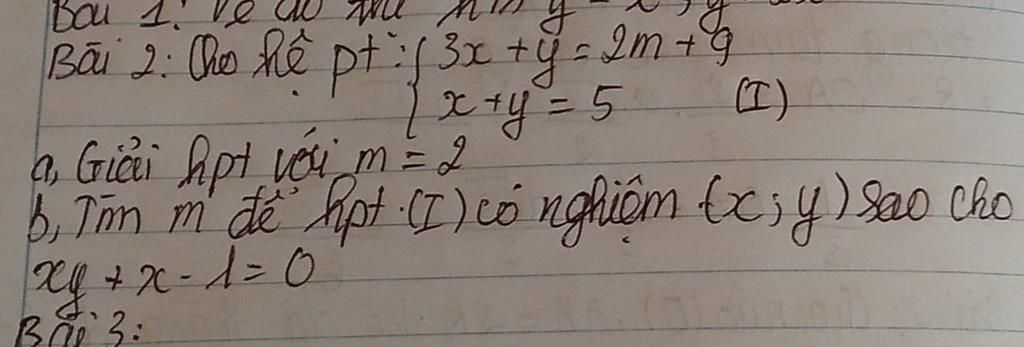 Bài 2: Cho hệ pt: { 3x + y = 2m + 9
x + y = 5 (I)
a, Giải hpt với m = 2
b, Tìm m để hpt (I) có nghiệm (x; y) sao cho
xy + x - 1 = 0
Bài 3: